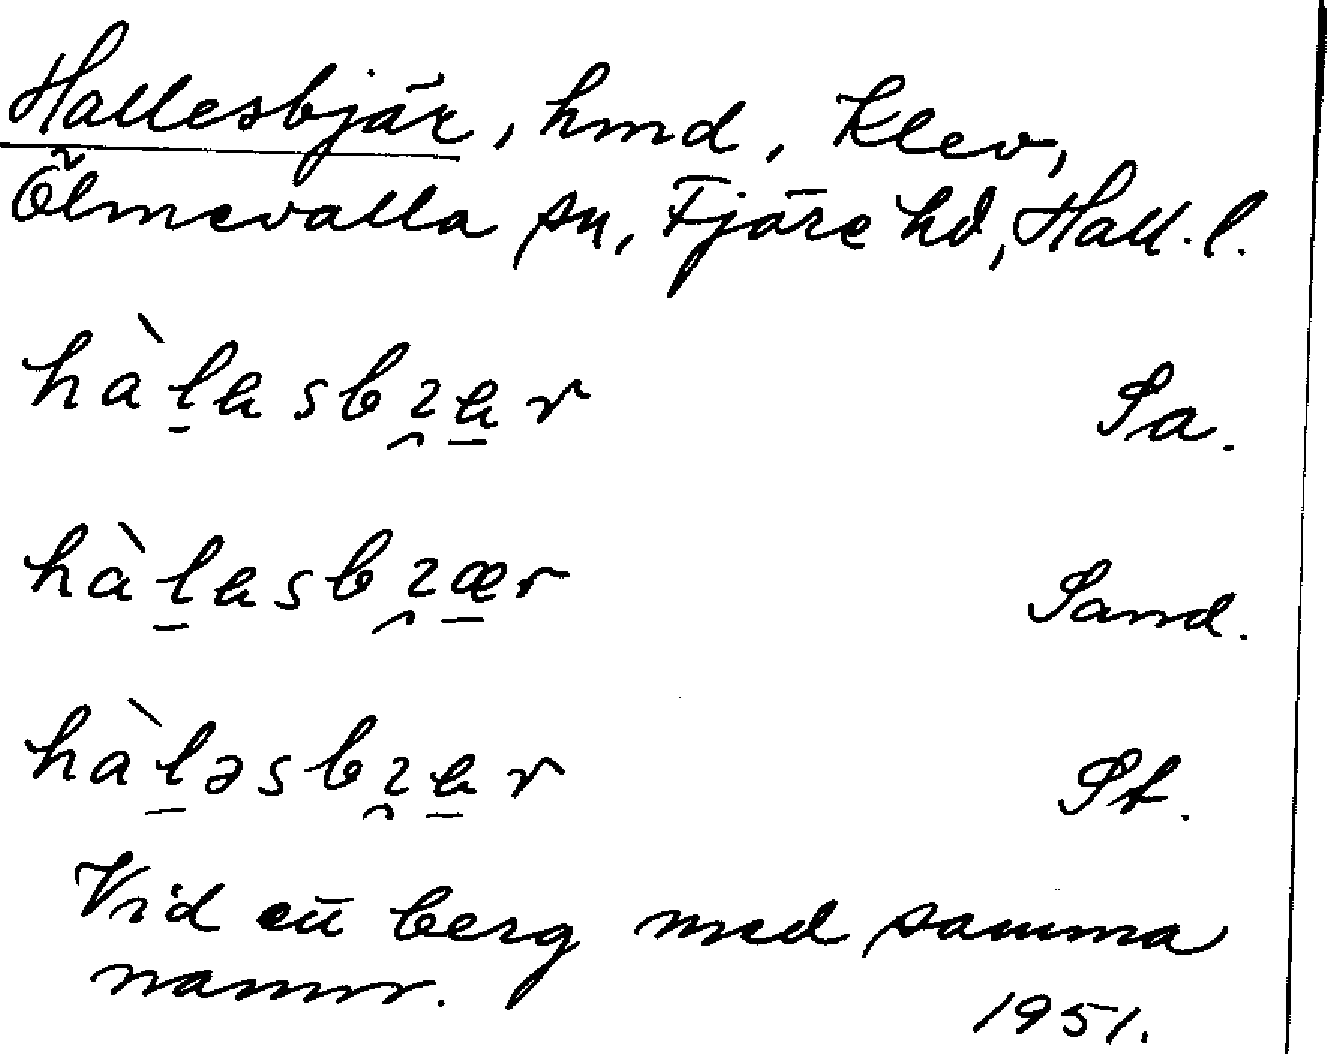 Hallesbjär, hmd, Klev,
Ölmevalla sn, Fjäre hd, Hall. l.
hàlasbɿar Sa.
hàlasbɿær Sand.
hàləsbɿar St.
Vid ett berg med samma
namn.
1951.